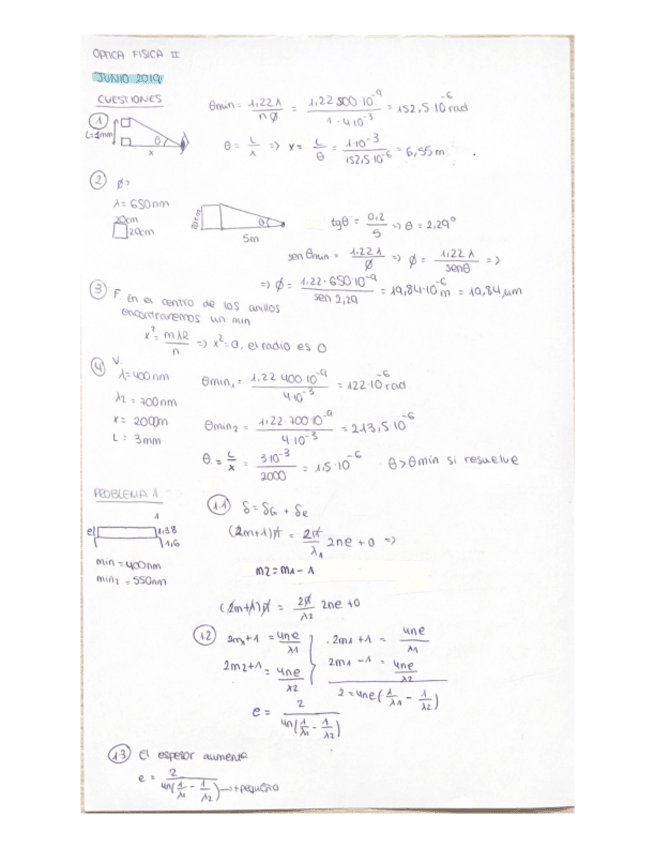 OPTICA FISICA II
JUNIO 2019
CUESTIONES
① L=1mm θ x
θmin = 1,22λ / nØ = 1,22 500·10⁻⁹ / 1·4·10⁻³ = 152,5·10⁻⁶ rad
θ = L/x => x = L/θ = 1·10⁻³ / 152,5 10⁻⁶ = 6,55 m
② Ø?
λ = 650nm
20cm
20cm
20cm θ 5m
tgθ = 0,2/5 => θ = 2,29°
sen θmin = 1,22λ / Ø => Ø = 1,22 λ / senθ =>
=> Ø = 1,22·650·10⁻⁹ / sen 2,29 = 19,84·10⁻⁶ m = 19,84 μm
③ F. En el centro de los anillos
encontraremos un min
x² = mλR / n => x² = 0, el radio es 0
④ V.
λ = 400nm
λ2 = 700nm
x = 2000m
L = 3mm
θmin₁ = 1,22 400·10⁻⁹ / 4·10⁻³ = 122·10⁻⁶ rad
θmin₂ = 1,22·700·10⁻⁹ / 4·10⁻³ = 213,5·10⁻⁶
θ = L/x = 3·10⁻³ / 2000 = 1,5·10⁻⁶ θ > θmin si resuelve
PROBLEMA 1
1
e 1,38
1,6
min = 400nm
min₂ = 550nm
1.1 δ = δG + δR
(2m+1)π = 2π/λ₁ 2ne + 0 =>
m2 = m1 - 1
(2m+1)π = 2π/λ2 2ne + 0
1.2 2m₁ + 1 = 4ne/λ1
2m2 + 1 = 4ne/λ2
2m1 + 1 = 4ne/λ1
2m1 - 1 = 4ne/λ2
2 = 4ne(1/λ1 - 1/λ2)
e = 2 / 4n(1/λ1 - 1/λ2)
1.3 El espesor aumenta
e = 2 / 4n(1/λ1 - 1/λ2) → + pequeño